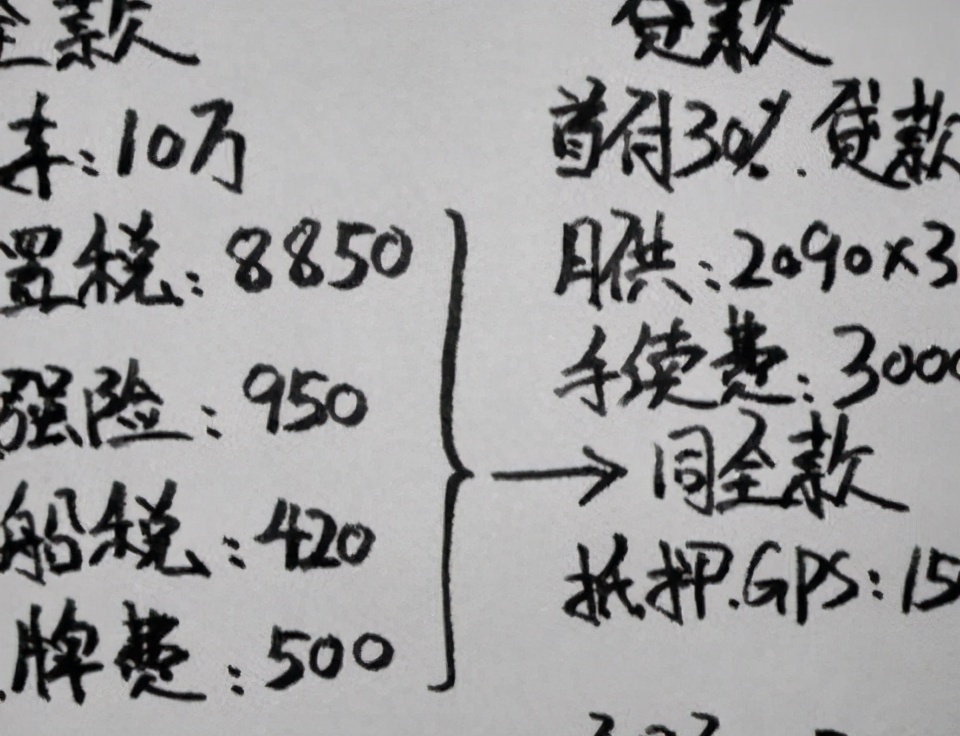 全款
车:10万
置税:8850
强险:950
船税:420
牌费:500
贷款
首付30%.贷款
月供:2090×3
手续费:3000
→同全款
抵押.GPS:15